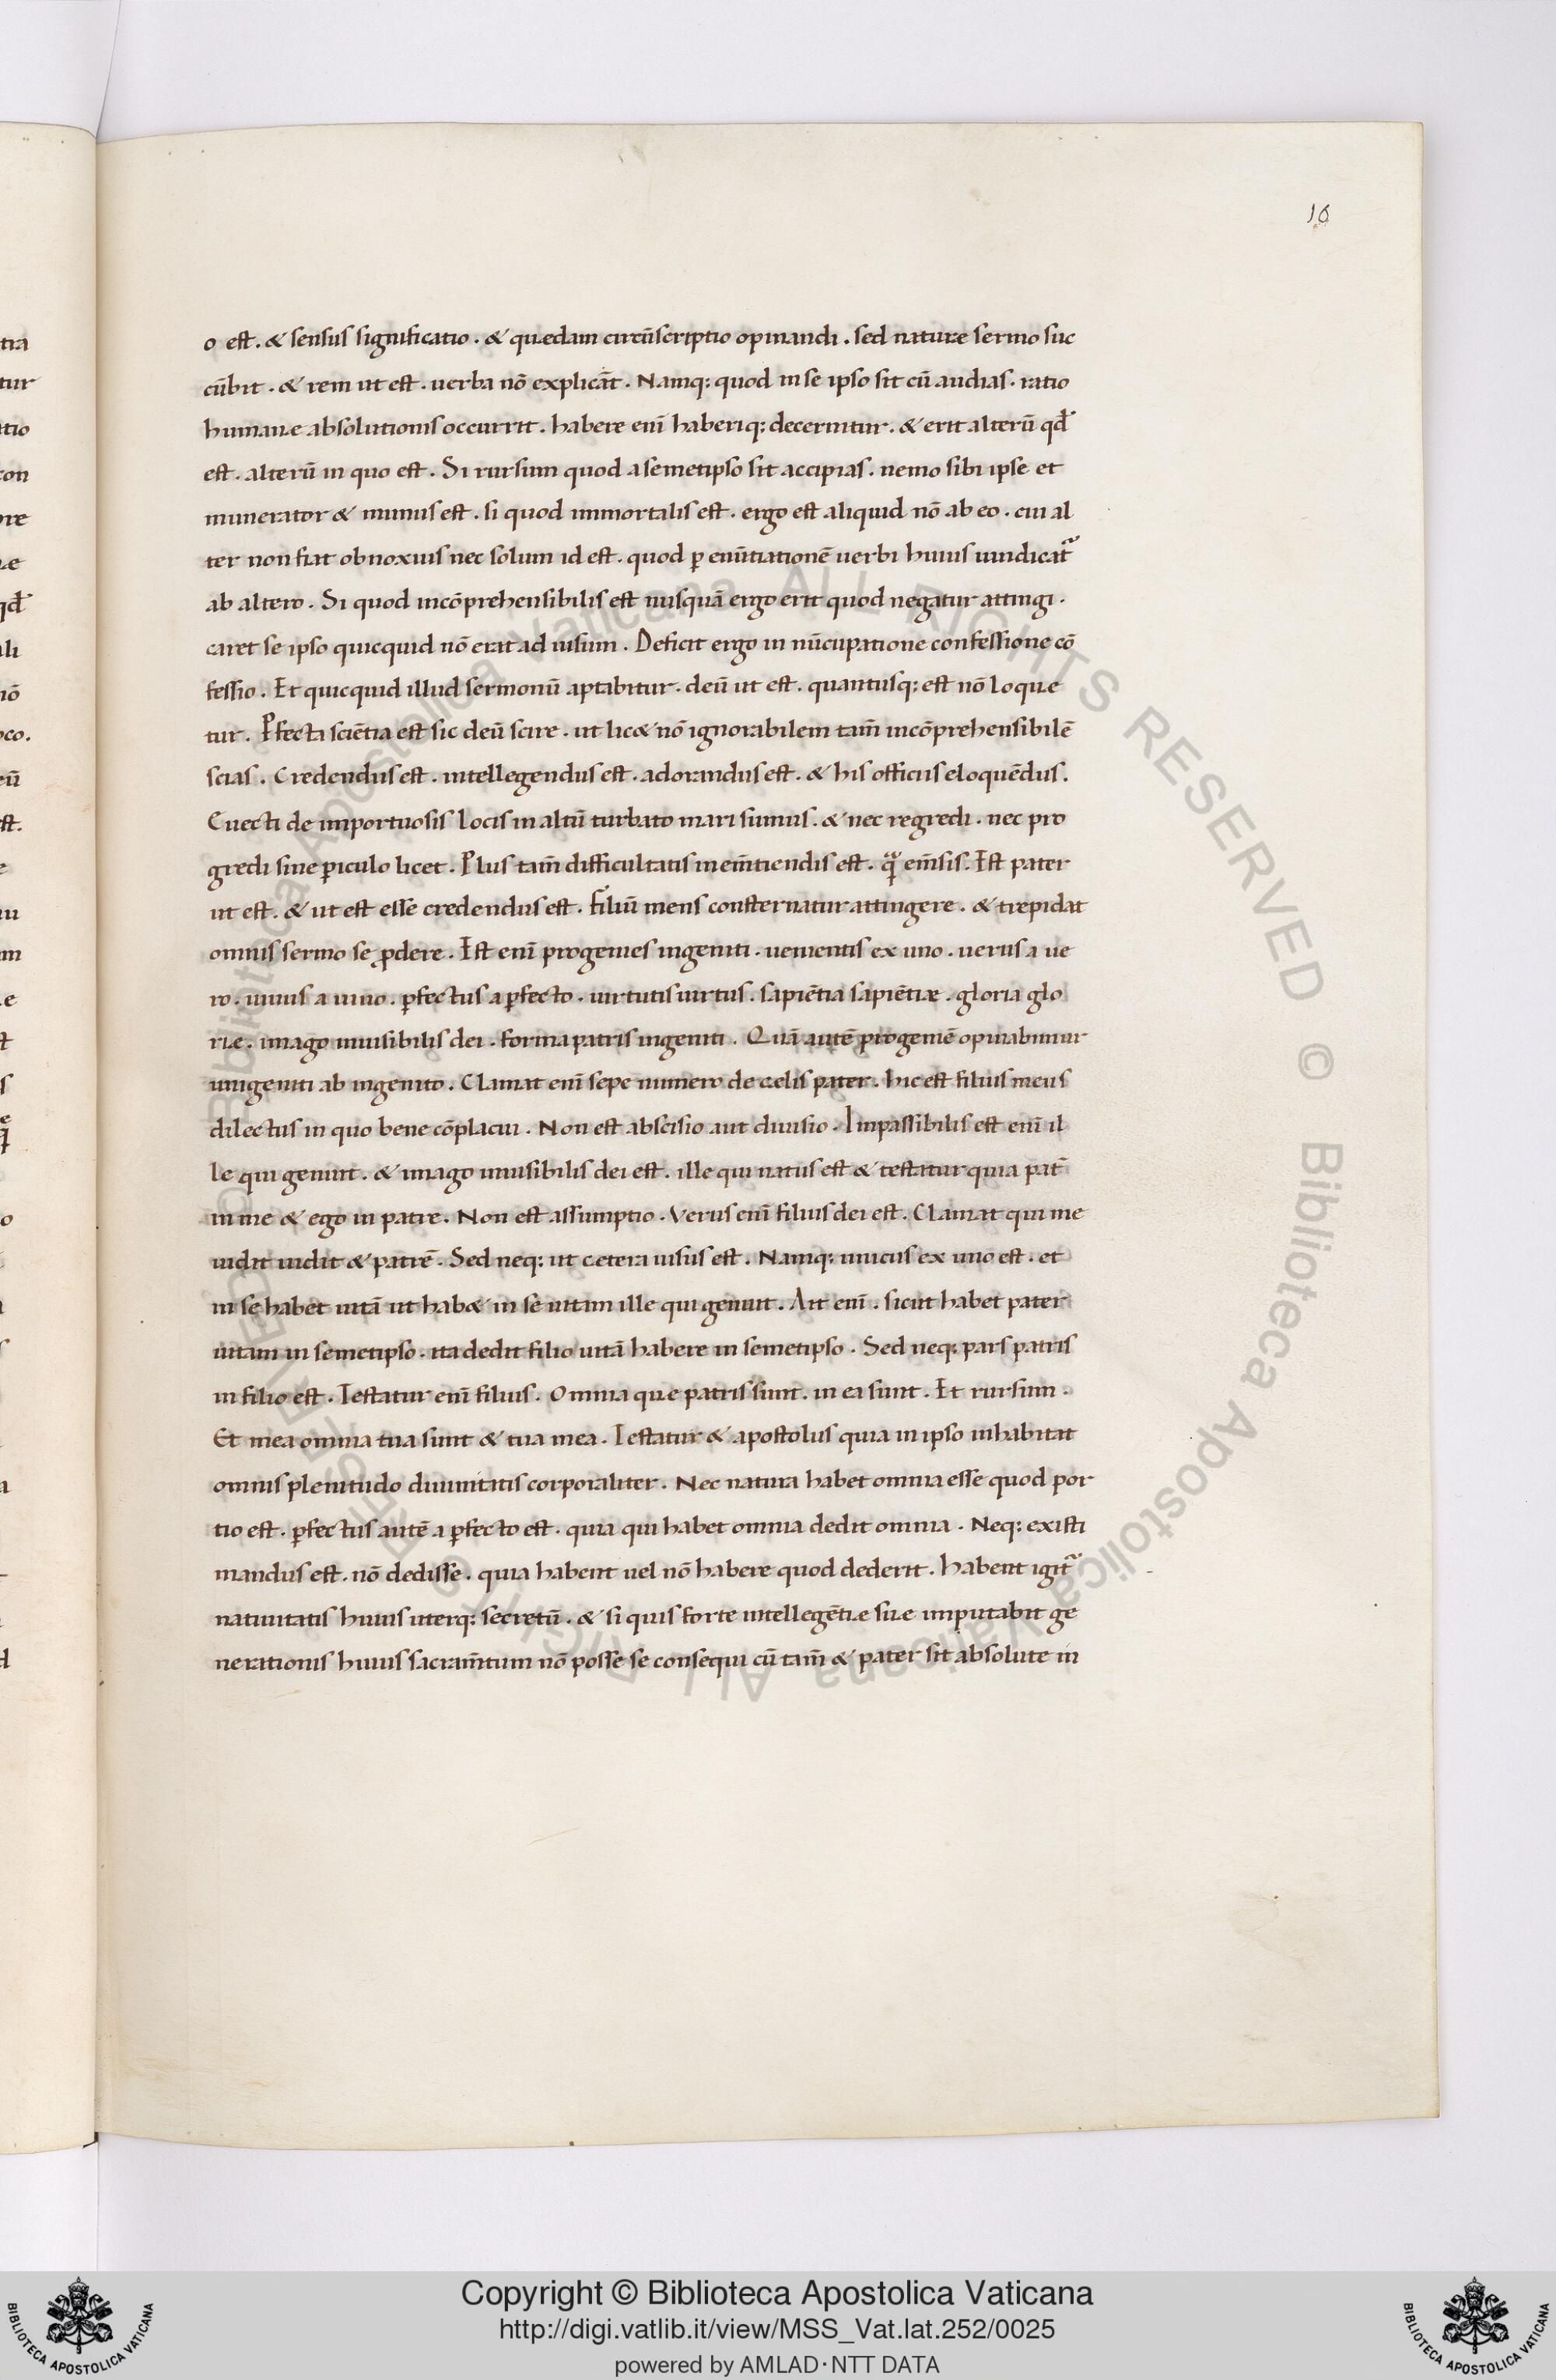 16
o est. & sensus significatio. & quedam circūscriptio opinandi. sed nature sermo suc
cūbit. & rem ut est. uerba nō explicāt. Namq; quod in se ipso sit cū audias. ratio
humane absolutionis occurrit. habere enī haberiq; decernitur. & erit alterū qđ
est. alterū in quo est. Si rursum quod a semetipso sit accipias. nemo sibi ipse et
munerator & munus est. si quod immortalis est. ergo est aliquid nō ab eo. cui al
ter non fiat obnoxius nec solum id est. quod ꝑ enūtiationē uerbi huius uindicat᷑
ab altero. Si quod incōprehensibilis est nusquā ergo erit quod negatur attingi.
caret se ipso quicquid nō erat ad uisum. Deficit ergo in nūcupatione confessione cō
fessio. Et quicquid illud sermonū aptabitur. deū ut est. quantusq; est nō loque
tur. Pfecta sciētia est sic deū scire. ut lic& nō ignorabilem tam̄ incōprehensibilē
scias. Credendus est. intellegendus est. adorandus est. & his officiis eloquēdus.
Euecti de importuosis locis in altū turbato mari sumus. & nec regredi. nec pro
gredi sine ꝑiculo licet. Plus tam̄ difficultatis in em̄tiendis est. em̄sis. Est pater
ut est. & ut est esse credendus est. filiū mens consternatur attingere. & trepidat
omnis sermo se ꝓdere. Est enī progenies ingeniti. uenientis ex uno. uerus a ue
ro. uiuus a uiuo. ꝑfectus a ꝑfecto. uirtutis uirtus. sapiētia sapiētiæ. gloria glo
rie. imago inuisibilis dei. forma patris ingeniti. Quā autē progeniē opinabimur
unigeniti ab ingenito. Clamat enī sepe numero de celis pater. hic est filius meus
dilectus in quo bene cōplacui. Non est abscisio aut diuisio. Impassibilis est enī il
le qui genuit. & imago inuisibilis dei est. ille qui natus est & testatur quia pat̄
in me & ego in patre. Non est assumptio. Verus enī filius dei est. Clamat qui me
uidit uidit & patrē. Sed neq; ut cetera uisus est. Namq; unicus ex uno est. et
in se habet uitā ut hab& in se uitam ille qui genuit. Ait enī. sicut habet pater
uitam in semetipso. ita dedit filio uitā habere in semetipso. Sed neq; pars patris
in filio est. Testatur enī filius. Omnia que patris sunt. m ea sunt. Et rursum.
Et mea omnia tua sunt & tua mea. Testatur & apostolus quia in ipso inhabitat
omnis plenitudo diuinitatis corporaliter. Nec natura habet omnia esse quod por
tio est. ꝑfectus autē a ꝑfecto est. quia qui habet omnia dedit omnia. Neq; existi
mandus est. nō dedisse. quia habent uel nō habere quod dederit. habent igit᷑
natiuitatis huius uterq; secretū. & si quis forte intellegētie sue imputabit ge
nerationis huius sacram̄tum nō posse se consequi cū tam̄ & pater sit absolute in
Copyright © Biblioteca Apostolica Vaticana
http://digi.vatlib.it/view/MSS_Vat.lat.252/0025
powered by AMLAD·NTT DATA